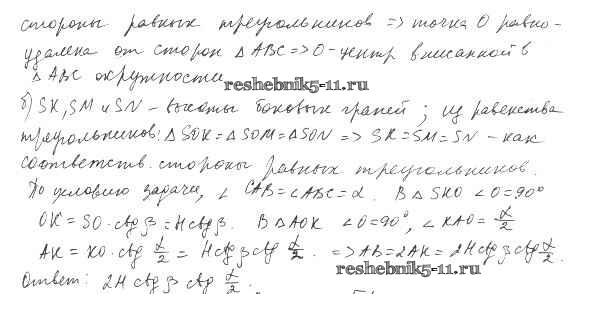 стороны равных треугольников => точка O равно-
удалена от сторон △ABC => O - центр вписанной в
△ABC окружности
reshebnik5-11.ru
б) SK, SM и SN - высоты боковых граней; из равенства
треугольников: △SOK = △SOM = △SON => SK = SM = SN - как
соответств. стороны равных треугольников.
По условию задачи, ∠CAB = ∠ABC = α. В △SKO ∠O = 90°
OK = SO · ctg β = H ctg β. В △AOK ∠O = 90°, ∠KAO = α/2
AK = KO · ctg α/2 = H ctg β ctg α/2. => AB = 2AK = 2H ctg β ctg α/2.
reshebnik5-11.ru
Ответ: 2H ctg β ctg α/2.